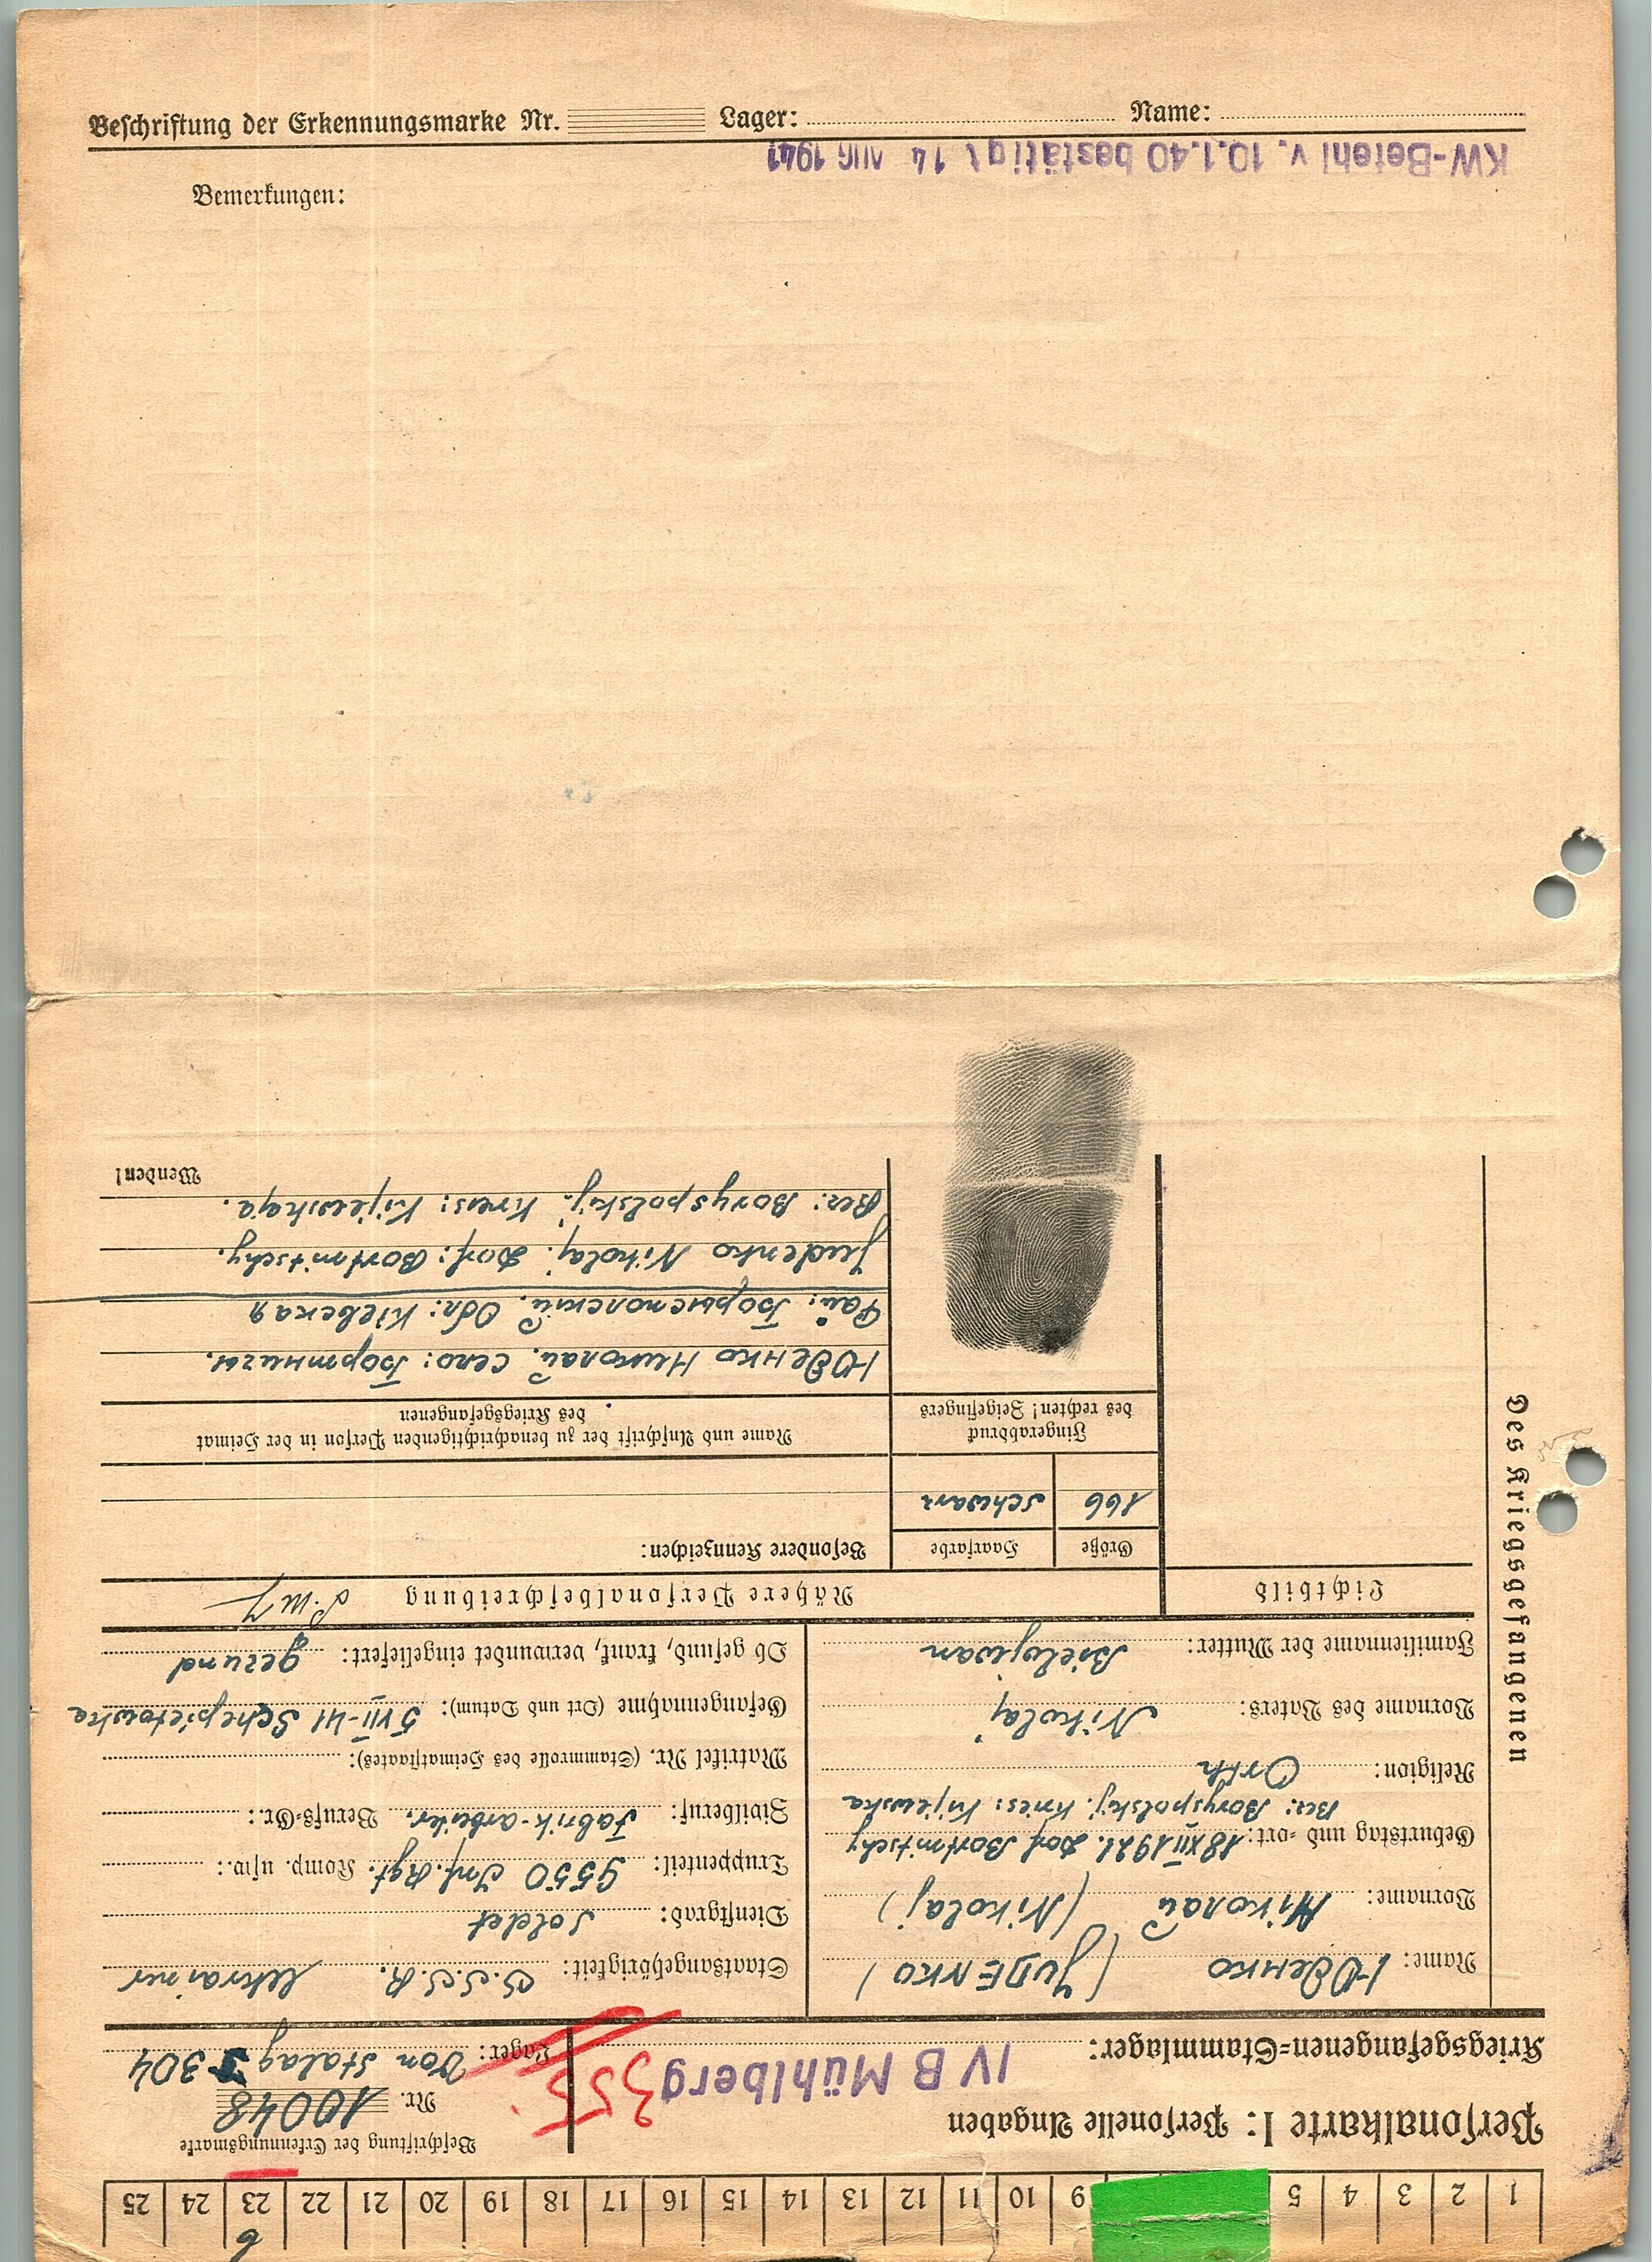 1 2 3 4 5 9 10 11 12 13 14 15 16 17 18 19 20 21 22 23 24 25
6
Personalkarte I: Personelle Angaben
Beschriftung der Erkennungsmarke
Nr. 10048
Kriegsgefangenen-Stammlager: IV B Mühlberg 355
Lager: Von Stalag 304
Des Kriegsgefangenen
Name: Юденко (JUDENKO)
Vorname: Міколай (Nikolaj)
Geburtstag und -ort: 18 XII 1921. Dorf Bortnitschy
Bez: Boryspolskij. Kreis: Kijewska
Religion: Orth
Vorname des Vaters: Nikolaj
Familienname der Mutter: Bielojwan
Staatsangehörigkeit: S.S.S.R. Ukrainer
Dienstgrad: Soldat
Truppenteil: 9550 Inf. Rgt. Komp. usw.:
Zivilberuf: Fabrik-arbeiter. Berufs-Gr.:
Matrikel Nr. (Stammrolle des Heimatstaates):
Gefangennahme (Ort und Datum): 5 VII-41 Schepietowka
Ob gesund, krank, verwundet eingeliefert: gesund
Lichtbild
Nähere Personalbeschreibung
Größe Haarfarbe Besondere Kennzeichen:
166 schwarz
Fingerabdruck
des rechten! Zeigefingers
Name und Anschrift der zu benachrichtigenden Person in der Heimat
des Kriegsgefangenen
Юденко Николай. Село: Бортничы.
Рай: Борыспольский. Обл: Кіевская
Judenko Nikolaj. Dorf: Bortnitschy.
Bez: Boryspolskij. Kreis: Kijewskaja.
Wenden!
Beschriftung der Erkennungsmarke Nr. Lager: Name:
KW-Befehl v. 10.1.40 bestätigt 14 AUG 1941
Bemerkungen: